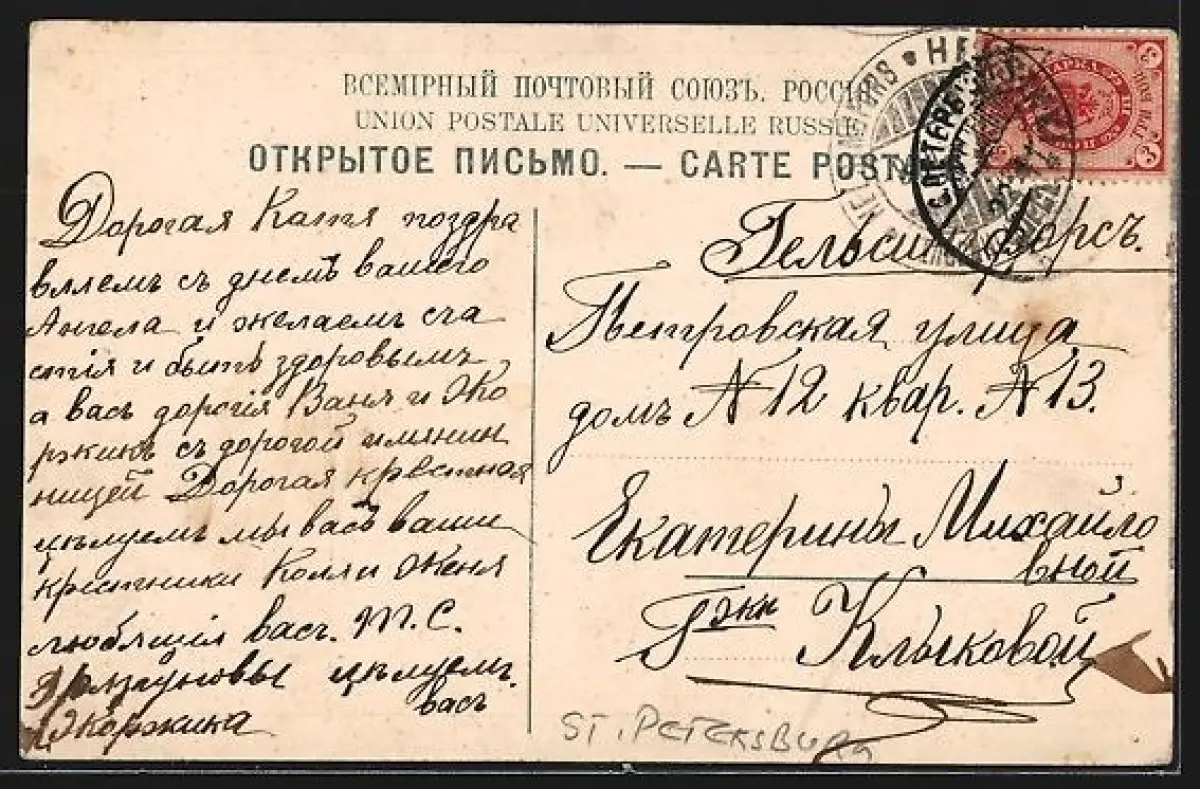 ВСЕМІРНЫЙ ПОЧТОВЫЙ СОЮЗЪ. РОССІЯ
UNION POSTALE UNIVERSELLE RUSSIE
ОТКРЫТОЕ ПИСЬМО. — CARTE POSTA
Дорогая Катя поздра
вляемъ съ днемъ вашего
Ангела и желаемъ сча
стія и быть здоровымъ
а васъ дорогія Ваня и Жо
ржикъ съ дорогой имянин
ницей Дорогая крестная
цѣлуемъ мы васъ ваши
крестники Коля и Женя
любящія васъ. М. С.
цѣлуемъ
васъ
Жоржика
Гельсингфорсъ.
Петровская улица
домъ № 12 квар. № 13.
Екатерины Михайло
вной
Гжи Клыковой
ST. PETERSBURG
С.ПЕТЕРБ